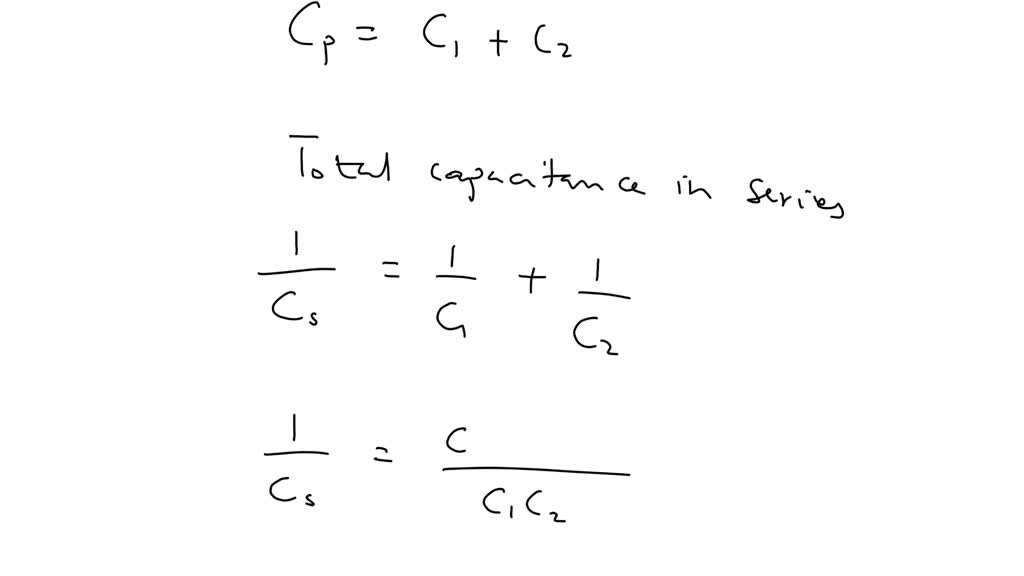 Cp = C₁ + C₂
Total capacitance in series
1/Cs = 1/C₁ + 1/C₂
1/Cs = C/C₁C₂